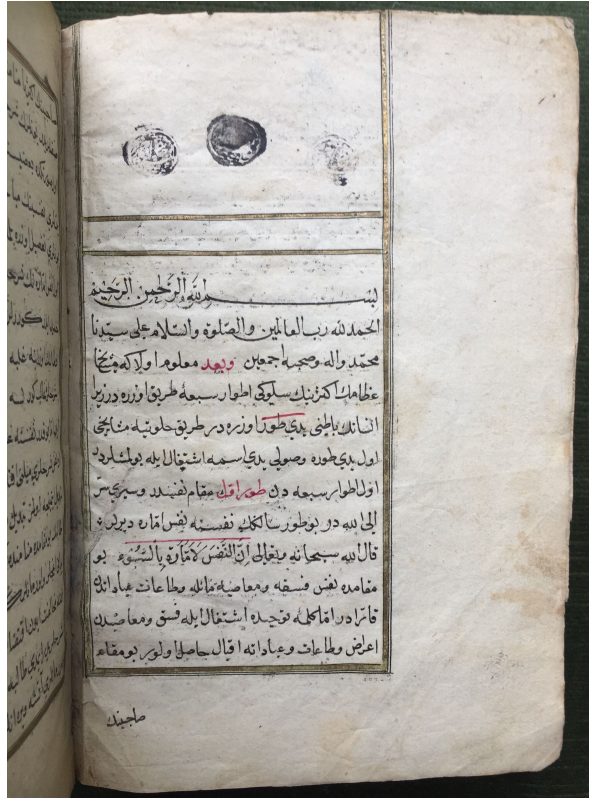 بسم الله الرحمن الرحيم
الحمد لله رب العالمين والصلوة والسلام على سيدنا
محمد واله وصحبه اجمعين وبعد معلوم اولاكه مشايخ
عظامك اكثرينك سلوكى اطوار سبعۀ طريق اوزره درزيرا
انسانك باطنى يدى طور اوزره در طريق خلوتيه مشايخى
اول يدى طوره وصولى يدى اسمه اشتغال ايله بولمشلردر
اول اطوار سبعه دن طور اول مقام نفسدر وسيرى
الى الله در بو طور سالكك نفسنه نفس اماره ديرلر
قال الله سبحانه وتعالى ان النفس لامارة بالسوء بو
مقامده نفس فسقه ومعاصيه مائله وطاعات عباداتدن
در اما كلمۀ توحيده اشتغال ايله فسق ومعاصيدن
اعراض وطاعات وعباداته اقبال حاصل اولور بو مقام